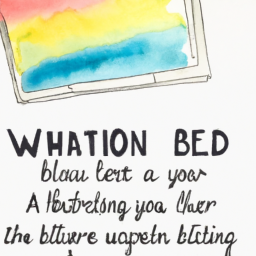 WHATION BED
blau lert a you
A Hbtrdong you Cluer
the blture uapetn blcting